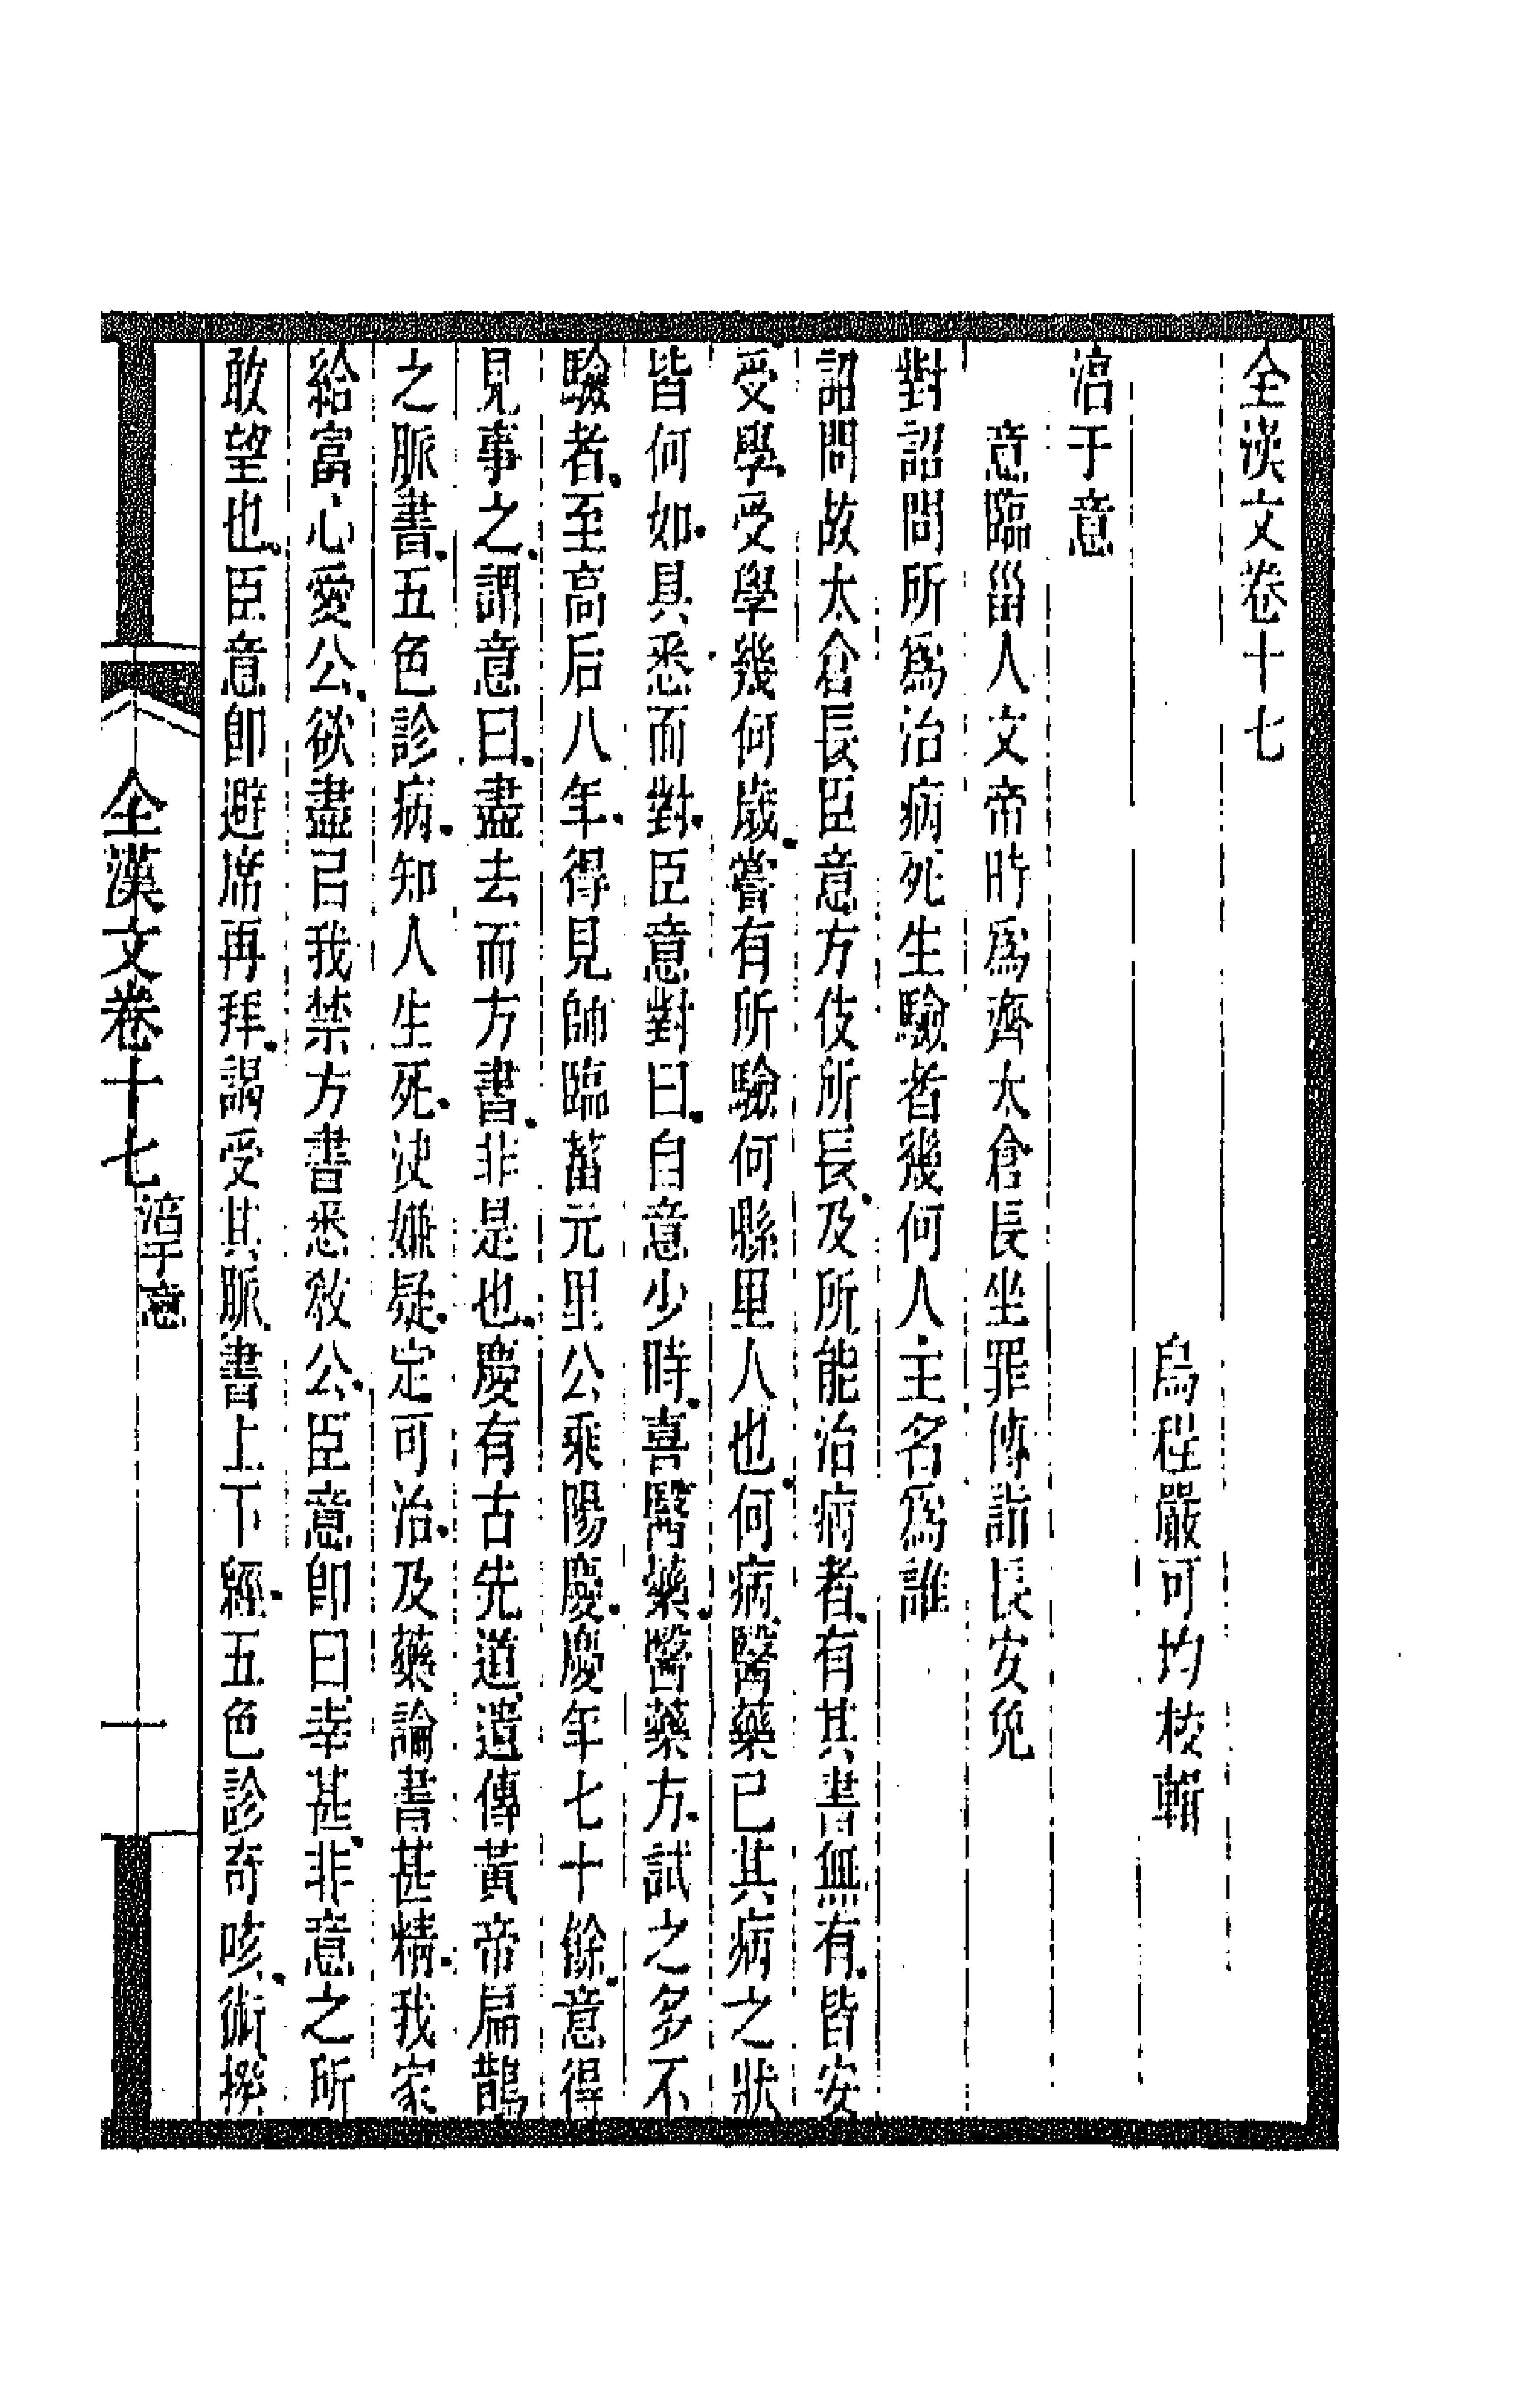 全漢文卷十七
烏程嚴可均校輯
淳于意
意臨甾人文帝時爲齊太倉長坐罪傳詣長安免
對詔問所爲治病死生驗者幾何人主名爲誰
詔問故太倉長臣意方伎所長及所能治病者有其書無有皆安
受學受學幾何歲嘗有所驗何縣里人也何病醫藥已其病之狀
皆何如具悉而對臣意對曰自意少時喜醫藥醫藥方試之多不
驗者至高后八年得見師臨菑元里公乘陽慶慶年七十餘意得
見事之謂意曰盡去而方書非是也慶有古先道遺傳黃帝扁鵲
之脈書五色診病知人生死決嫌疑定可治及藥論書甚精我家
給富心愛公欲盡㠯我禁方書悉敎公臣意卽曰幸甚非意之所
敢望也臣意卽避席再拜謁受其脈書上下經五色診奇咳術揆
全漢文卷十七 淳于意 一